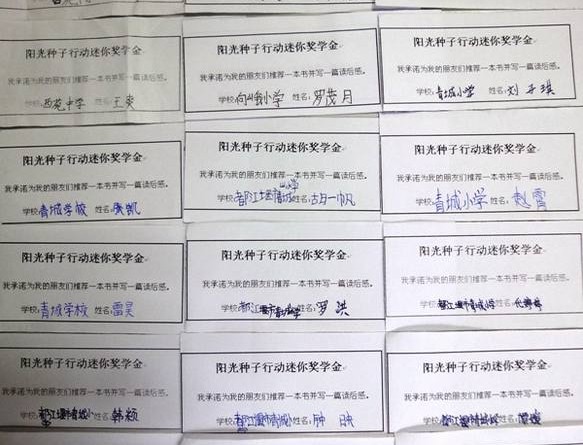 阳光种子行动迷你奖学金
我承诺为我的朋友们推荐一本书并写一篇读后感。
学校:西苑中学 姓名:王奕
阳光种子行动迷你奖学金
我承诺为我的朋友们推荐一本书并写一篇读后感。
学校:向峨小学 姓名:罗茂月
阳光种子行动迷你奖学金
我承诺为我的朋友们推荐一本书并写一篇读后感。
学校:青城小学 姓名:刘子琪
阳光种子行动迷你奖学金
我承诺为我的朋友们推荐一本书并写一篇读后感。
学校:青城学校 姓名:黄凯
阳光种子行动迷你奖学金
我承诺为我的朋友们推荐一本书并写一篇读后感。
学校:都江堰青城小学 姓名:胡一帆
阳光种子行动迷你奖学金
我承诺为我的朋友们推荐一本书并写一篇读后感。
学校:青城小学 姓名:赵雪
阳光种子行动迷你奖学金
我承诺为我的朋友们推荐一本书并写一篇读后感。
学校:青城学校 姓名:雷昊
阳光种子行动迷你奖学金
我承诺为我的朋友们推荐一本书并写一篇读后感。
学校:都江堰市青城小学 姓名:罗洪
阳光种子行动迷你奖学金
我承诺为我的朋友们推荐一本书并写一篇读后感。
学校:都江堰市青城小学 姓名:
阳光种子行动迷你奖学金
我承诺为我的朋友们推荐一本书并写一篇读后感。
学校:都江堰市青城小 姓名:韩颖
阳光种子行动迷你奖学金
我承诺为我的朋友们推荐一本书并写一篇读后感。
学校:都江堰市青城小 姓名:钟映
阳光种子行动迷你奖学金
我承诺为我的朋友们推荐一本书并写一篇读后感。
学校:都江堰市青城 姓名: